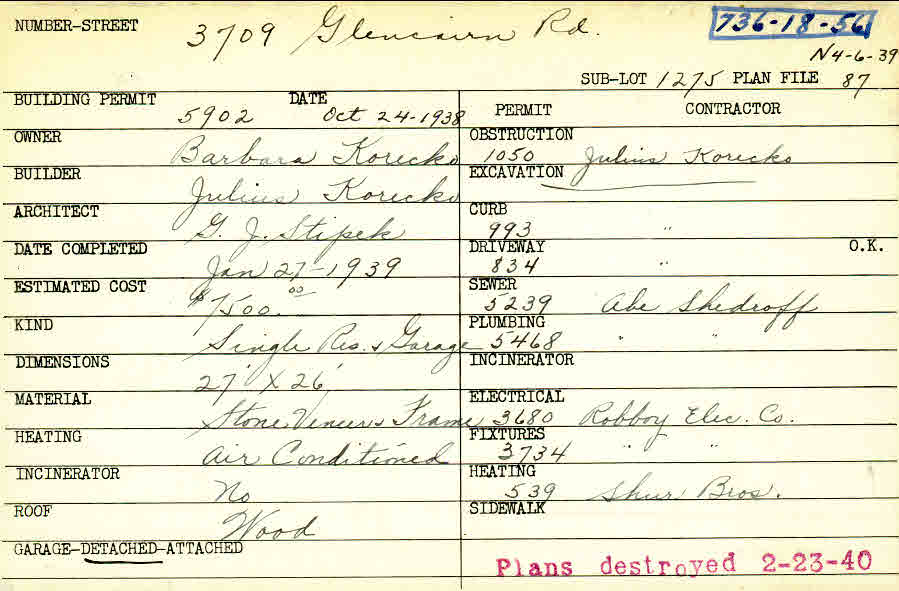 NUMBER-STREET 3709 Glencairn Rd. 736-18-56
N4-6-39
SUB-LOT 1275 PLAN FILE 87
BUILDING PERMIT 5902 DATE Oct 24-1938
OWNER Barbara Korecko
BUILDER Julius Korecko
ARCHITECT G. J. Stipek
DATE COMPLETED Jan 27-1939
ESTIMATED COST $7500.00
KIND Single Res. & Garage
DIMENSIONS 27' X 26'
MATERIAL Stone Veneer & Frame
HEATING Air Conditioned
INCINERATOR No
ROOF Wood
GARAGE-DETACHED-ATTACHED
PERMIT CONTRACTOR
OBSTRUCTION 1050 Julius Korecko
EXCAVATION
CURB 993 "
DRIVEWAY 834 " O.K.
SEWER 5239 Abe Shedroff
PLUMBING 5468 " "
INCINERATOR
ELECTRICAL 3680 Robboy Elec. Co.
FIXTURES 3734 " "
HEATING 539 Shur Bros.
SIDEWALK
Plans destroyed 2-23-40